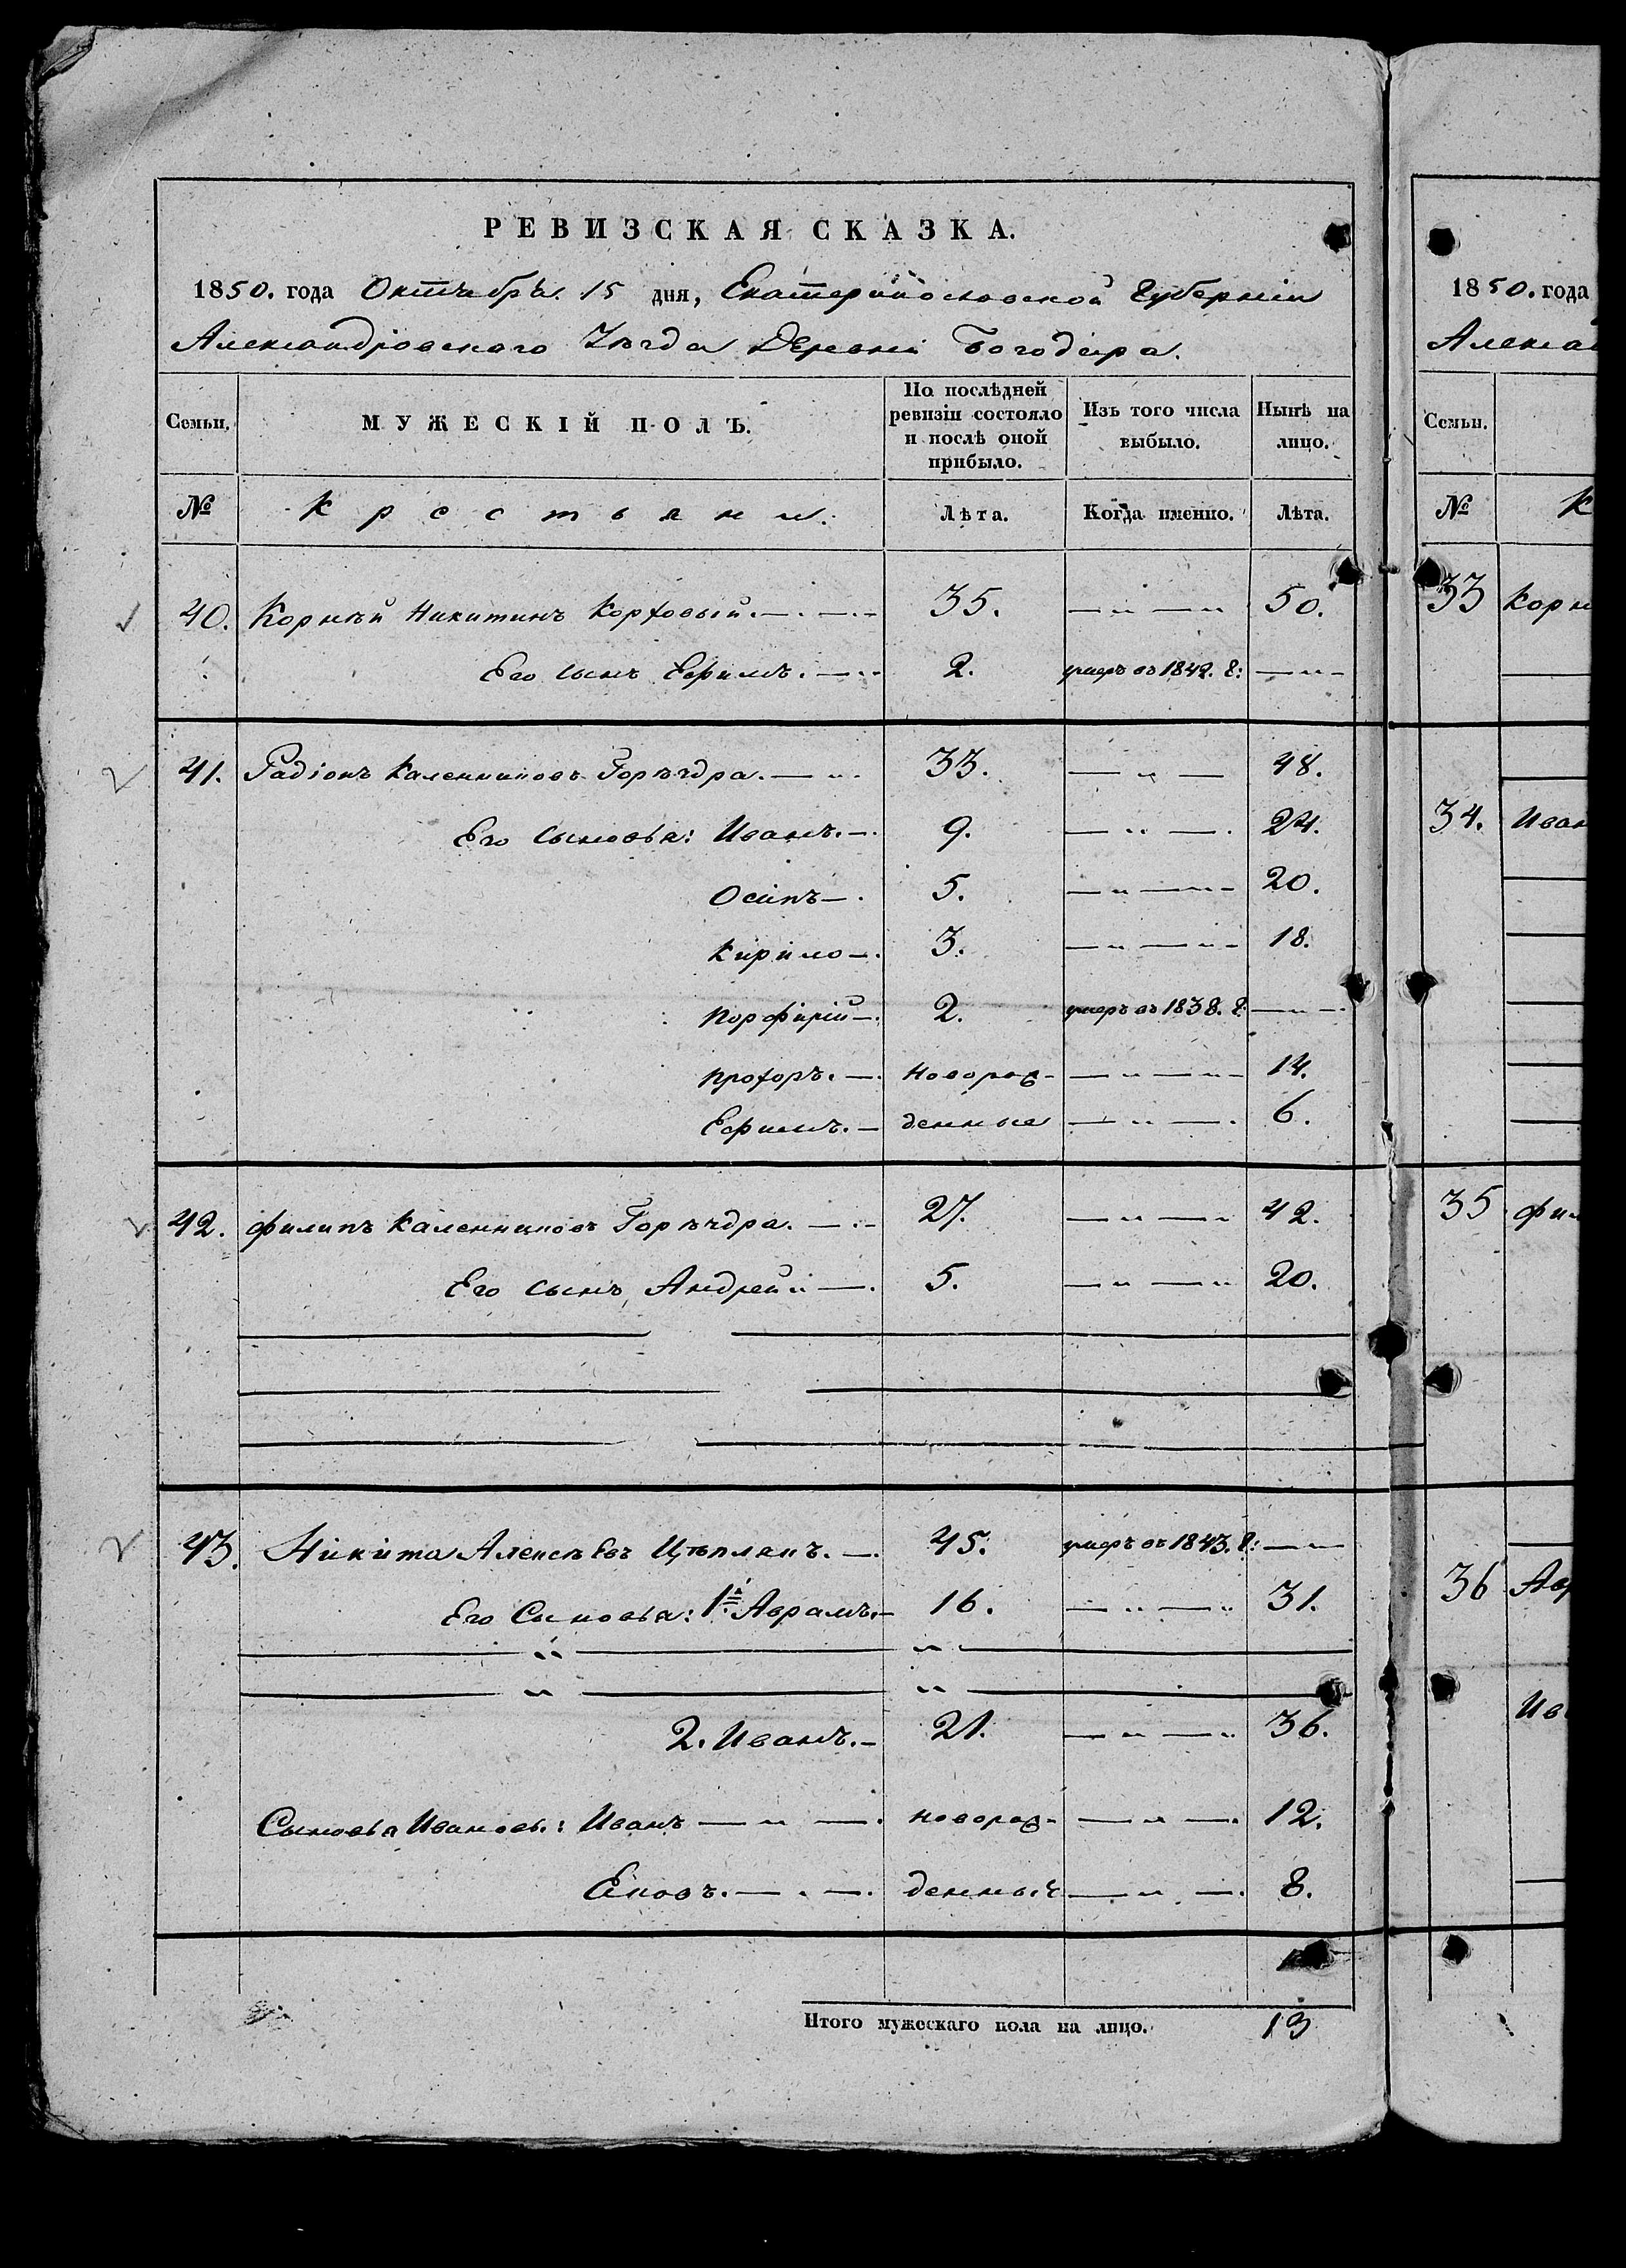 РЕВИЗСКАЯ СКАЗКА.
1850. года Октября 15 дня, Екатеринославской Губерніи
Александровскаго Уѣзда Деревни Богодара.
Семьи. МУЖЕСКІЙ ПОЛЪ. По послѣдней ревизіи состояло и послѣ оной прибыло. Изъ того числа выбыло. Нынѣ на лицо.
№ Крестьяне. Лѣта. Когда именно. Лѣта.
40. Корнѣй Никитинъ 35. — „ — „ 50.
Его сынъ Ефимъ. 2. умеръ въ 1842. г: — „ —
41. Радіонъ Каленниковъ 33. — „ — 48.
Его сыновья: Иванъ. 9. — „ — 24.
Осипъ 5. — „ — „ 20.
Кирило 3. — „ — „ 18.
Порфирій 2. умеръ въ 1838. г: — „ —
Прохоръ. новорож- — „ — „ 14.
Ефимъ. денные — „ — 6.
42. Филипъ Каленниковъ 27. — „ — „ 42.
Его сынъ Андрей 5. — „ — „ 20.
43. Никита Алексѣевъ Цыплякъ. 45. умеръ въ 1843. г: — „
Его Сыновья: 1й Аврамъ. 16. — „ — „ 31.
„ „
„ „
2. Иванъ. 21. — „ — „ 36.
Сыновья Ивановы: Иванъ — „ — новорож- — „ — 12.
Яковъ. — „ — денный — „ — 8.
Итого мужескаго пола на лицо. 13
1850. года
Семьи.
№
33
34. Иван
35
36